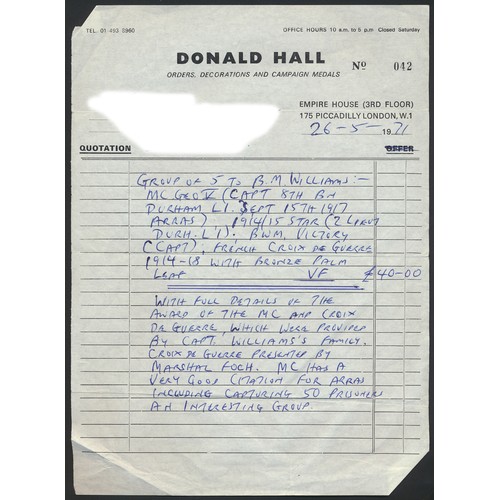 TEL. 01 493 8960
OFFICE HOURS 10 a.m. to 5 p.m Closed Saturday
DONALD HALL
Nº 042
ORDERS, DECORATIONS AND CAMPAIGN MEDALS
EMPIRE HOUSE (3RD FLOOR)
175 PICCADILLY LONDON, W.1
26-5-1971
QUOTATION OFFER
GROUP OF 5 TO B.M WILLIAMS:-
MC GEO V (CAPT 8TH BN
DURHAM L.I. SEPT 15TH 1917
ARRAS), 1914/15 STAR (2 LIEUT
DURH. L.I). BWM, VICTORY
(CAPT), FRENCH CROIX DE GUERRE
1914-18 WITH BRONZE PALM
LEAF VF £40-00
WITH FULL DETAILS OF THE
AWARD OF THE MC AND CROIX
DE GUERRE, WHICH WERE PROVIDED
BY CAPT. WILLIAMS'S FAMILY.
CROIX DE GUERRE PRESENTED BY
MARSHAL FOCH. MC HAS A
VERY GOOD CITATION FOR ARRAS
INCLUDING CAPTURING 50 PRISONERS
AN INTERESTING GROUP